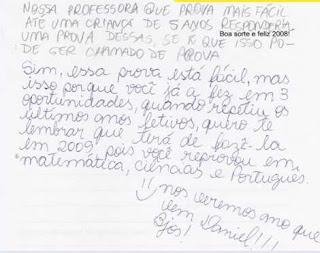 NOSSA PROFESSORA QUE PROVA MAIS FÁCIL
ATÉ UMA CRIANÇA DE 5 ANOS RESPONDERIA
UMA PROVA DESSAS, SE É QUE ISSO PO-
Boa sorte e feliz 2008!
DE SER CHAMADO DE PROVA
Sim, essa prova está fácil, mas
isso porque você já a fez em 3
oportunidades, quando repetiu os
últimos anos letivos, quero te
lembrar que terá de fazê-la
em 2009, pois você reprovou em
matemática, ciências e Português.
nos veremos ano que
vem Daniel!!!
Bjos!